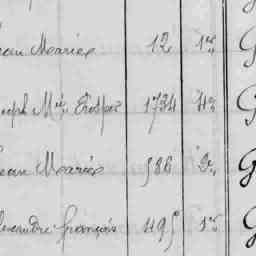 ean Marie 12 1er G
oseph Mie Prosper 1734 4e G
ean Marie 586 2e G
lexandre françois 495 1er G